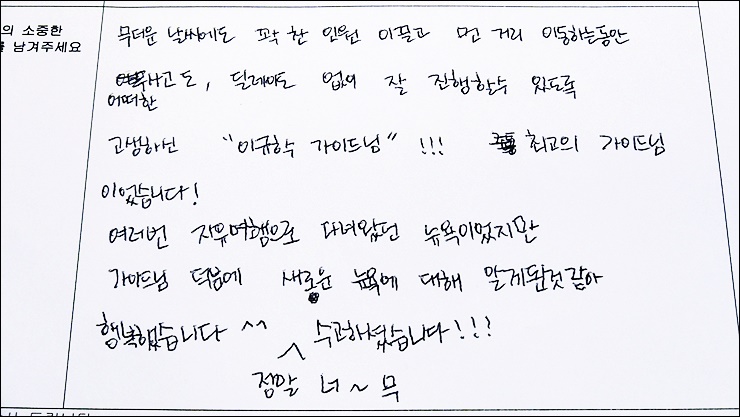 의 소중한
남겨주세요
무더운 날씨에도 꽉 찬 인원 이끌고 먼 거리 이동하는동안
어떠한 사고도, 딜레이도 없이 잘 진행할수 있도록
고생하신 "이규학수 가이드님" !!! 최고의 가이드님
이었습니다!
여러번 자유여행으로 다녀왔던 뉴욕이었지만
가이드님 덕분에 새로운 뉴욕에 대해 알게된것같아
행복했습니다 ^^ 정말 너~무 수고하셨습니다!!!